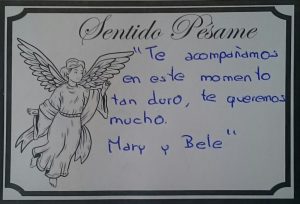 Sentido Pésame
"Te acompañamos
en este momento
tan duro, te queremos
mucho.
Mary y Bele"